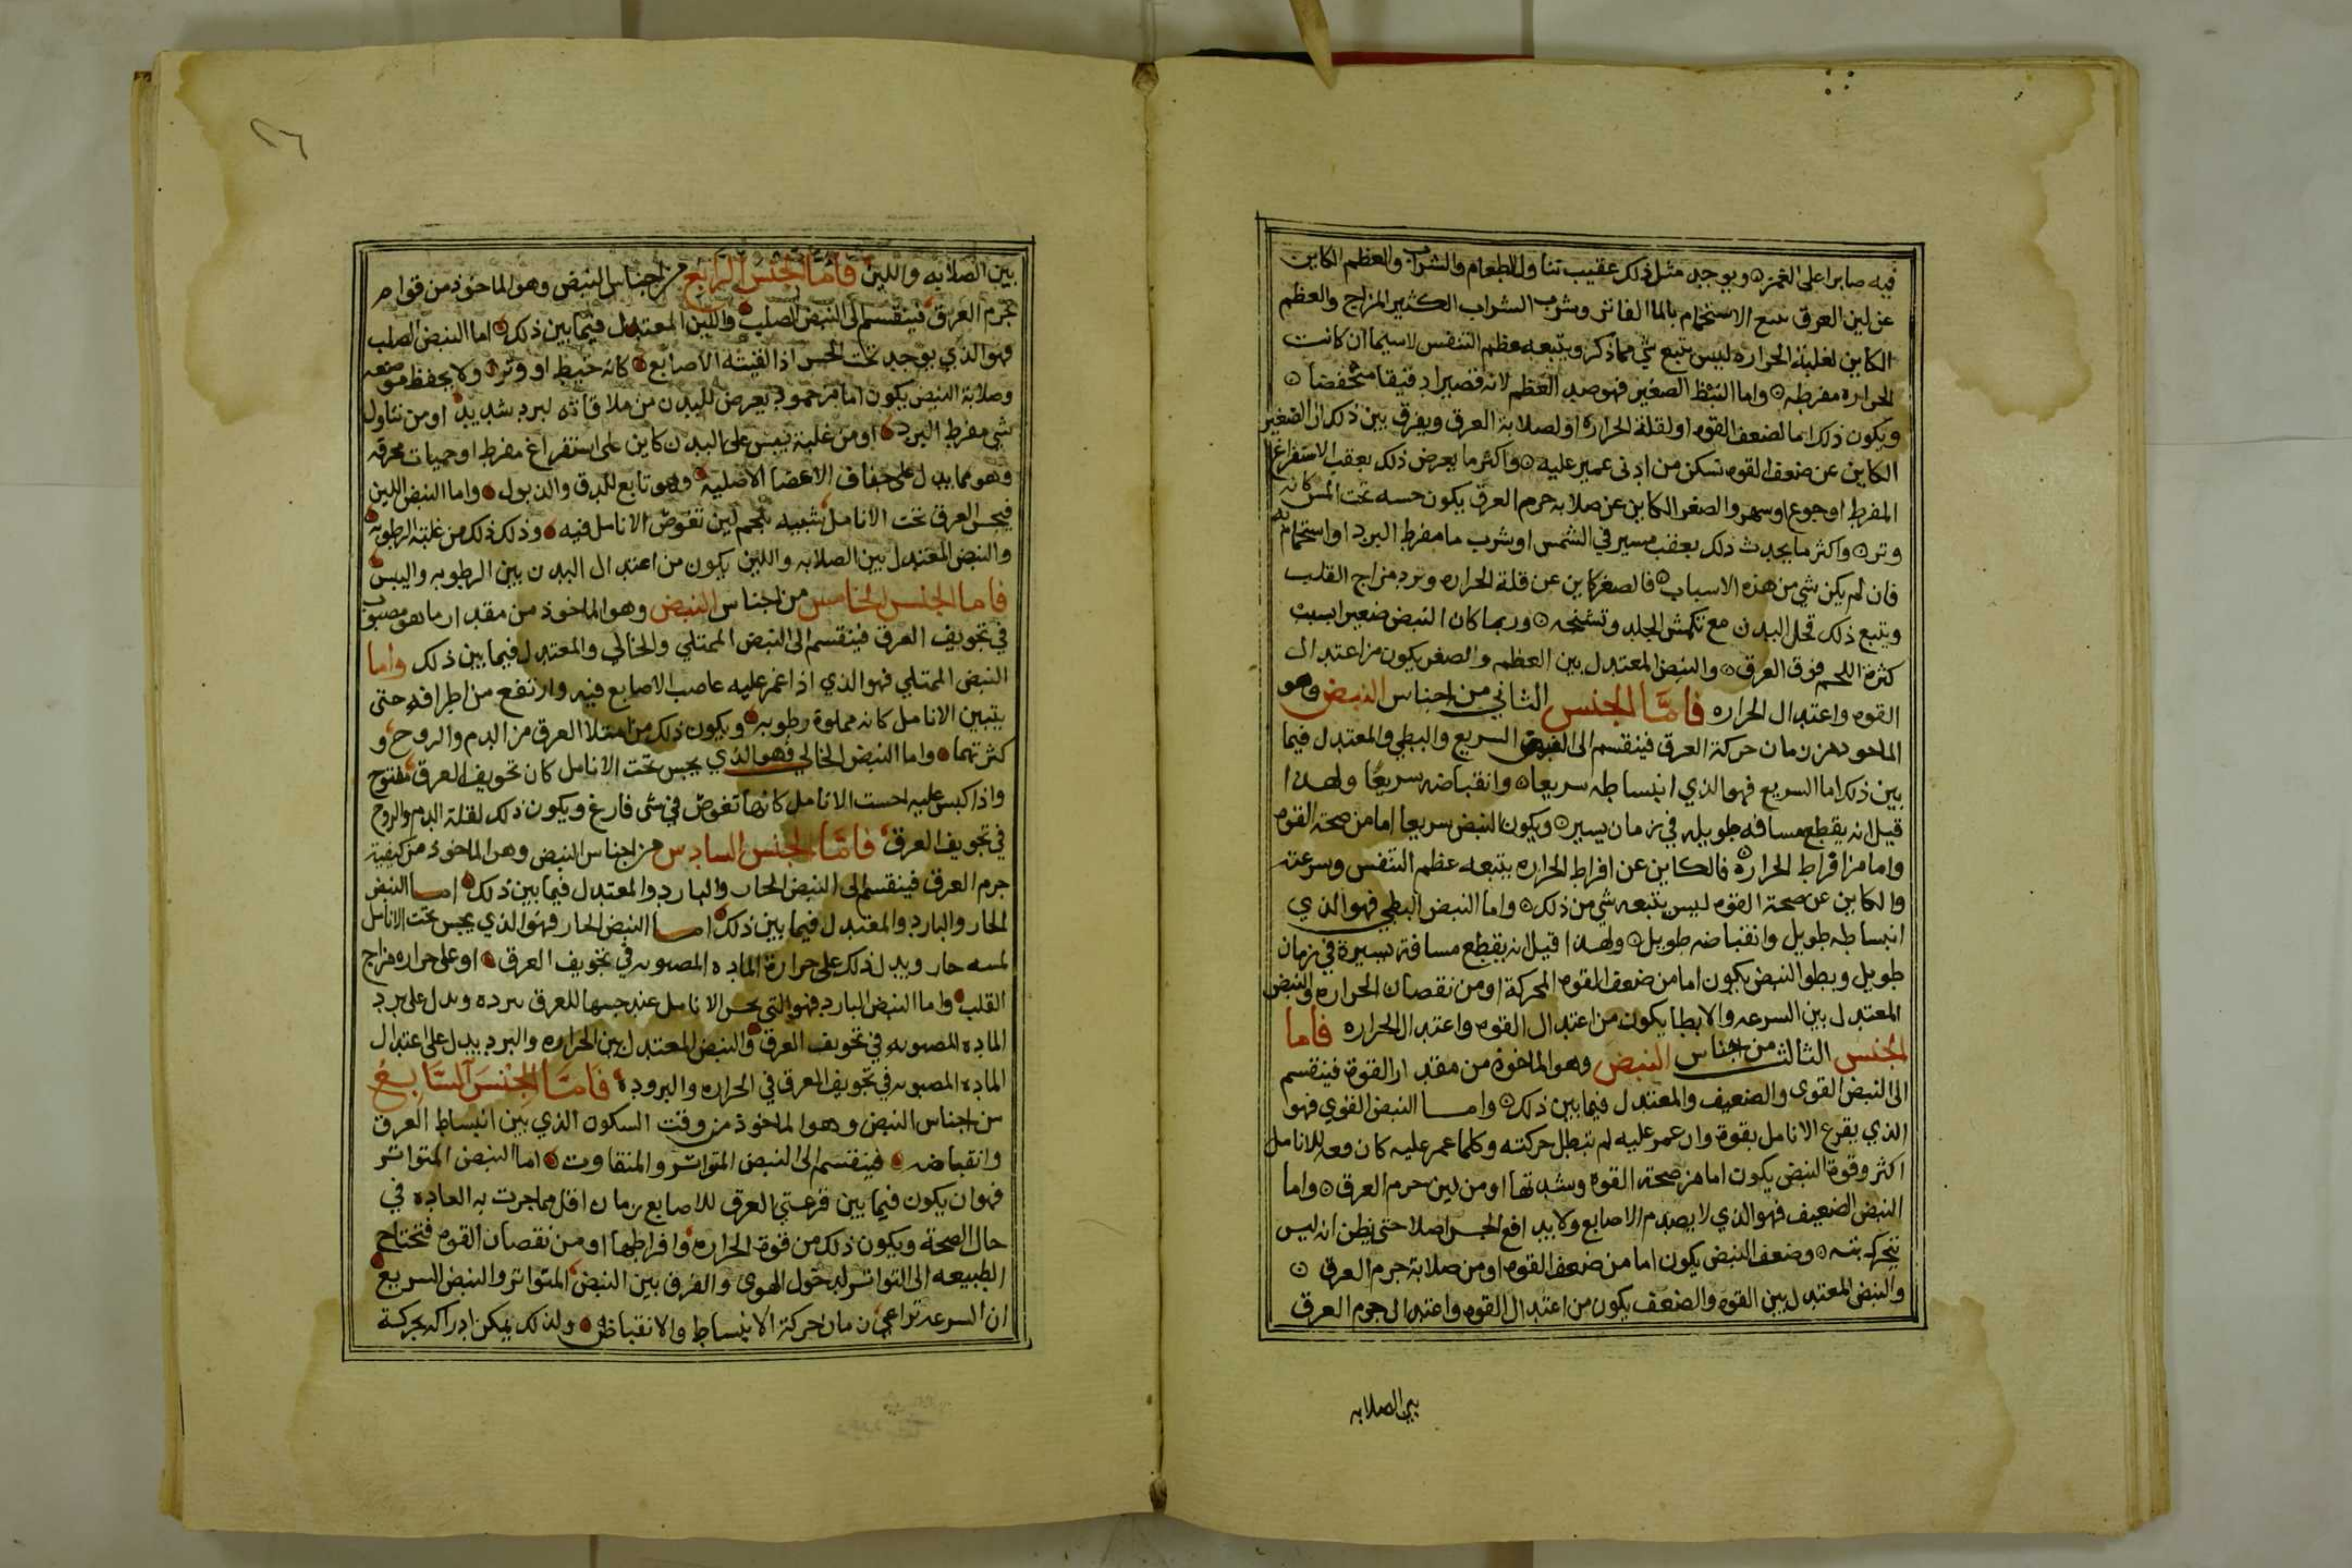 فيه صابرا على الغمز ۞ ويوجد مثل ذلك عقيب تناول الطعام والشراب والعظم الكاين
عن لين العرق يتبع الاستحمام بالما الفاتر وشرب الشراب الكثير المزاج والعظم
الكاين لغلبة الحراره ليس يتبع شي مما ذكر ويتبعه عظم التنفس لاسيما ان كانت
الحراره مفرطه ۞ واما النبظ الصغير فهو ضد العظم لانه قصيرا دقيقا منخفضا ۞
ويكون ذلك اما لضعف القوه او لقلة الحراره او لصلابة العرق ويفرق بين ذلك ان الصغير
الكاين عن ضعف القوه تسكن من ادنى غمز عليه ۞ واكثر ما يعرض ذلك بعقب الاستفراغ
المفرط او جوع او سهر والصغر الكاين عن صلابه جرم العرق يكون حسه تحت المس كانه
وتر ۞ واكثر ما يحدث ذلك بعقب مسير في الشمس او شرب ما مفرط البرد او استحمام به
فان لم يكن شي من هذه الاسباب ۞ فالصغر كاين عن قلة الحراره وبرد مزاج القلب
ويتبع ذلك قحل البدن مع تكمش الجلد وتشنجه ۞ وربما كان النبض صغيرا بسبب
كثرة اللحم فوق العرق ۞ والنبض المعتدل بين العظم والصغر يكون من اعتدال
القوه واعتدال الحراره فامّا الجنس الثاني من اجناس النبض وهو
الماخوذ من زمان حركة العرق فينقسم الى النبض السريع والبطي والمعتدل فيما
بين ذلك اما السريع فهو الذي انبساطه سريعا ۞ وانقباضه سريعًا ولهذا
قيل انه يقطع مسافه طويله في زمان يسير ۞ ويكون النبض سريعا اما من صحة القوه
واما من افراط الحرارة ۞ فالكاين عن افراط الحراره يتبعه عظم التنفس وسرعته
والكاين عن صحة القوه ليس يتبعه شي من ذلك ۞ واما النبض البطي فهو الذي
انبساطه طويل وانقباضه طويل ۞ ولهذا قيل انه يقطع مسافة يسيرة في زمان
طويل وبطو النبض يكون اما من ضعف القوه المحركة او من نقصان الحراره والنبض
المعتدل بين السرعه والابطا يكون من اعتدال القوه واعتدال الحراره فاما
الجنس الثالث من اجناس النبض وهو الماخوذ من مقدار القوة فينقسم
الى النبض القوى والضعيف والمعتدل فيما بين ذلك ۞ واما النبض القوي فهو
الذي يقرع الانامل بقوة وان غمز عليه لم تبطل حركته وكلما غمز عليه كان وقعه للانامل
اكثر وقوة النبض يكون اما من صحة القوة وشدتها او من لين جرم العرق ۞ واما
النبض الضعيف فهو الذي لا يصدم الاصابع ولا يدافع الحس اصلا حتى يظن انه ليس
يتحرك بته ۞ وضعف النبض يكون اما من ضعف القوه او من صلابة جرم العرق ۞
والنبض المعتدل بين القوه والضعف يكون من اعتدال القوه واعتدال جرم العرق
بين الصلابه
٢٦
بين الصلابه واللين فامّا الجنس الرابع من اجناس النبض وهو الماخوذ من قوام
جرم العرق فينقسم الى النبض الصلب واللين المعتدل فيما بين ذلك اما النبض الصلب
فهو الذي يوجد تحت الحس اذا لقيته الاصابع كانه خيط او وتر ولا يحفظ موضعه
وصلابة النبض يكون اما من جمود يعرض للبدن من ملاقاته لبرد شديد او من تناول
شي مفرط البرد او من غلبة يبس على البدن كاين على استفراغ مفرط او حميات محرقه
وهو مما يدل على جفاف الاعضا الاصليه وهو تابع للدق والذبول واما النبض اللين
فيحس العرق تحت الانامل شبيه بلحم لين تغوص الانامل فيه وذلك ذلك من غلبة الرطوبه
والنبض المعتدل بين الصلابه واللين يكون من اعتدال البدن بين الرطوبه واليبس
فاما الجنس الخامس من اجناس النبض وهو الماخوذ من مقدار ما هو مصبوب
في تجويف العرق فينقسم الى النبض الممتلي والخالي والمعتدل فيما بين ذلك واما
النبض الممتلي فهو الذي اذا غمز عليه غاصت الاصابع فيه وارتفع من اطرافه حتى
يتبين الانامل كانه مملوة رطوبه ويكون ذلك من امتلا العرق من الدم والروح و
كثرتهما واما النبض الخالي فهو الذي يحس تحت الانامل كان تجويف العرق مفتوح
واذا كبس عليه احست الانامل كانها تغوص في شى فارغ ويكون ذلك لقلة الدم والروح
في تجويف العرق فامّا الجنس السادس من اجناس النبض وهو الماخوذ من كيفية
جرم العرق فينقسم الى النبض الحار والبارد والمعتدل فيما بين ذلك اما النبض
الحار والبارد والمعتدل فيما بين ذلك اما النبض الحار فهو الذي يحس تحت الانامل
لمسه حار ويدل ذلك على حرارة الماده المصبوبه في تجويف العرق او على حراره مزاج
القلب واما النبض البارد فهو التي يحس الانامل عند جسها للعرق ببرده ويدل على برد
الماده المصبوبه في تجويف العرق والنبض المعتدل بين الحراره والبرد يدل على اعتدال
الماده المصبوبه في تجويف العرق في الحراره والبرودة فامّا الجنس السّابع
من اجناس النبض وهو الماخوذ من وقت السكون الذي بين انبساط العرق
وانقباضه فينقسم الى النبض المتواتر والمتفاوت اما النبض المتواتر
فهو ان يكون فيما بين قرعتي العرق للاصابع زمان اقل مما جرت به العاده في
حال الصحة ويكون ذلك من قوة الحراره وافراطها او من نقصان القوه فتحتاج
الطبيعه الى التواتر لدخول الهوى والفرق بين النبض المتواتر والنبض السريع
ان السرعه تراعي زمان حركة الانبساط والانقباض ولذلك يمكن ادراكه بحركة